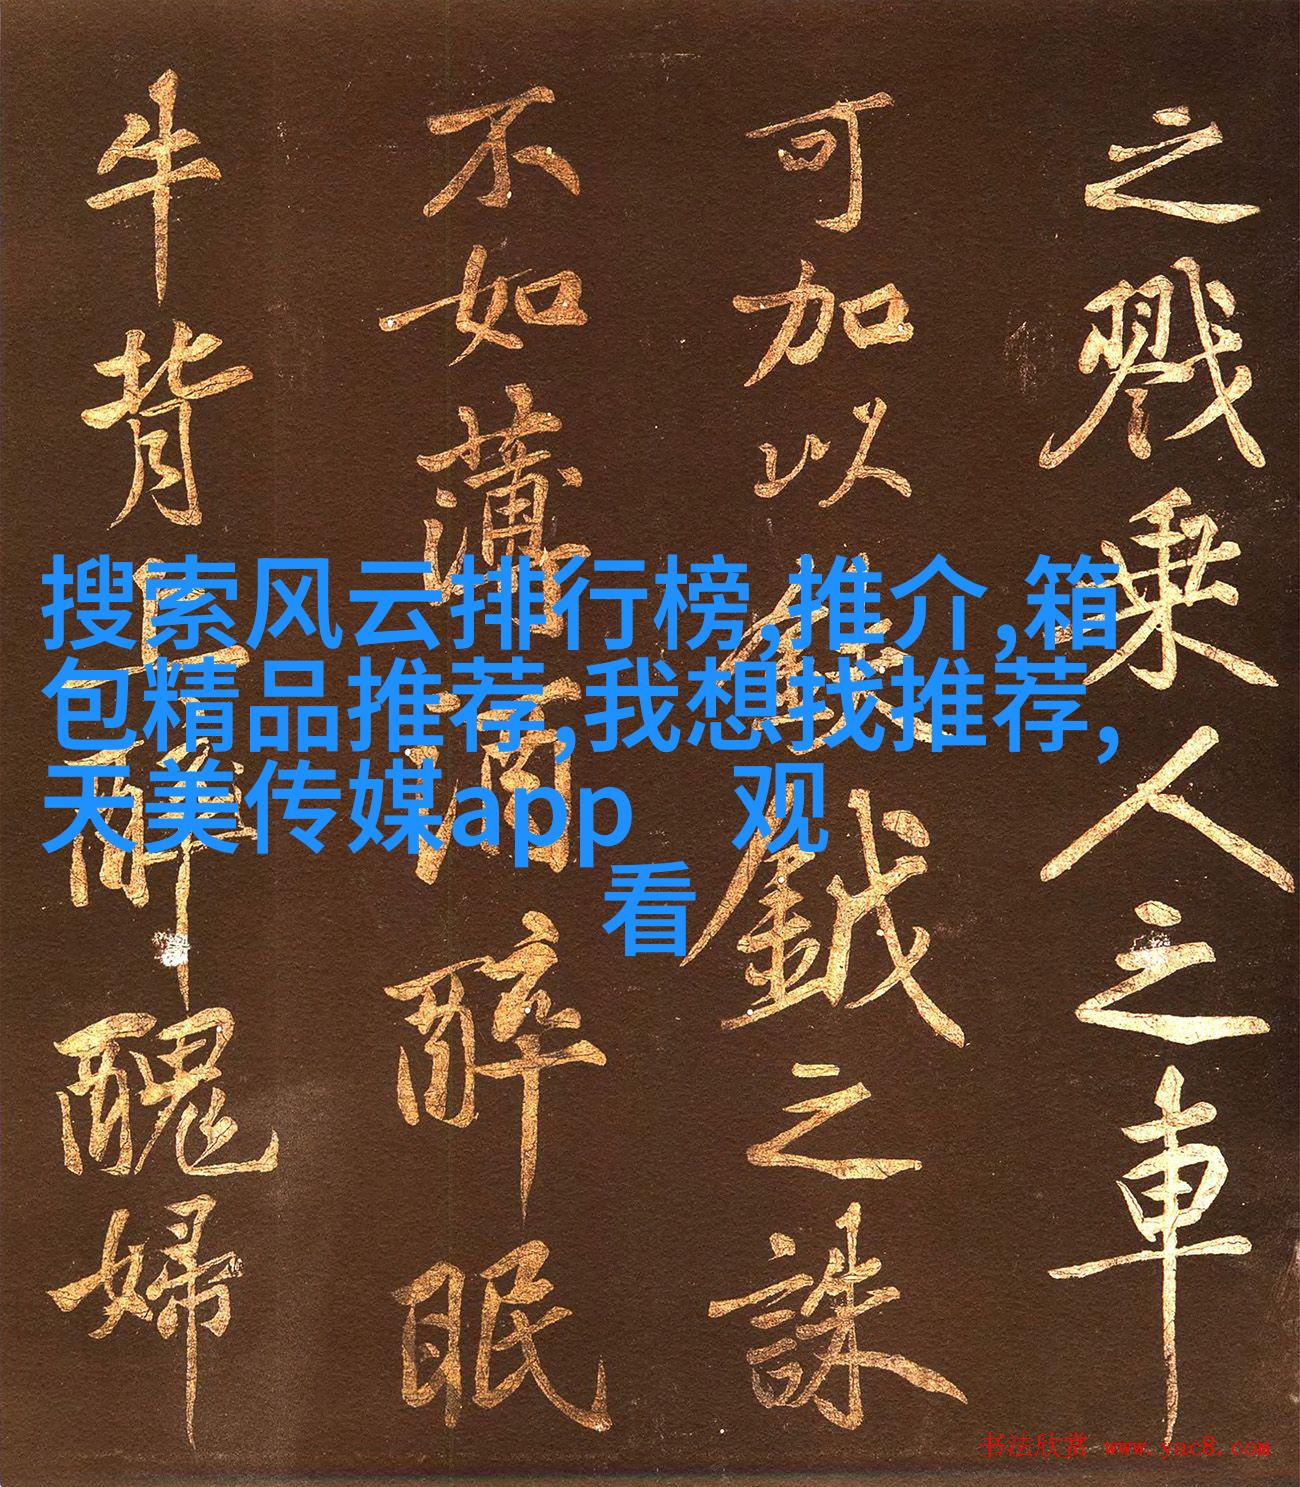 之戮乘人之車
可加以鈇鉞之誅
不如薄酒醉眠
牛背上醉醜婦
搜索风云排行榜,推介,箱
包精品推荐,我想找推荐,
天美传媒app 观
看
书法欣赏 www.yac8.com